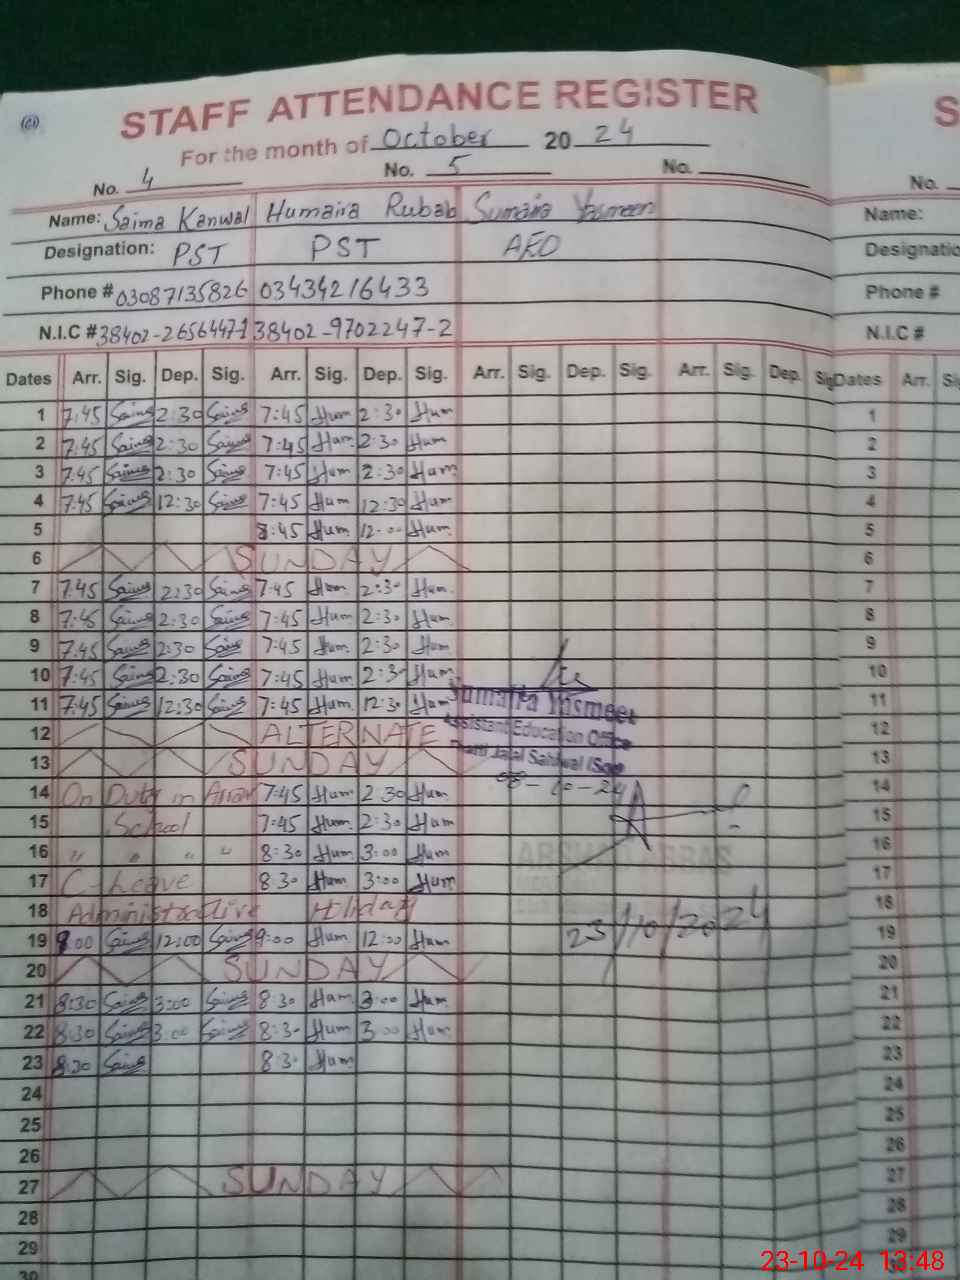 STAFF ATTENDANCE REGISTER
For the month of October 2024
No. 4 No. 5 No.
Name: Saima Kanwal Humaira Rubab Sumaira Yasmeen
Designation: PST PST AEO
Phone # 03087135826 03434216433
N.I.C # 38402-2656447-1 38402-9702247-2
Dates Arr. Sig. Dep. Sig. Arr. Sig. Dep. Sig. Arr. Sig. Dep. Sig. Arr. Sig. Dep. Sig
1 7:45 Saima 2:30 Saima 7:45 Hum 2:30 Hum
2 7:45 Saima 2:30 Saima 7:45 Hum 2:30 Hum
3 7:45 Saima 2:30 Saima 7:45 Hum 2:30 Hum
4 7:45 Saima 12:30 Saima 7:45 Hum 12:30 Hum
5 8:45 Hum 12:00 Hum
6 SUNDAY
7 7:45 Saima 2:30 Saima 7:45 Hum 2:30 Hum
8 7:45 Saima 2:30 Saima 7:45 Hum 2:30 Hum
9 7:45 Saima 2:30 Saima 7:45 Hum 2:30 Hum
10 7:45 Saima 2:30 Saima 7:45 Hum 2:30 Hum
11 7:45 Saima 12:30 Saima 7:45 Hum 12:30 Hum
12 ALTERNATE
13 SUNDAY
14 On Duty in 7:45 Hum 2:30 Hum
15 School 7:45 Hum 2:30 Hum
16 " " " " 8:30 Hum 3:00 Hum
17 C-Leave 8:30 Hum 3:00 Hum
18 Administrative Holiday
19 9:00 Saima 12:00 Saima 9:00 Hum 12:00 Hum
20 SUNDAY
21 8:30 Saima 3:00 Saima 8:30 Hum 3:00 Hum
22 8:30 Saima 3:00 Saima 8:30 Hum 3:00 Hum
23 8:30 Saima 8:30 Hum
24
25
26
27 SUNDAY
28
29
30
Sumaira Yasmeen
Assistant Education Office
Jalal Sahiwal (Sgd)
08-10-24
ARSHAD ABBAS
23/10/2024
S
No.
Name:
Designatio
Phone #
N.I.C #
Dates Arr. Si
1
2
3
4
5
6
7
8
9
10
11
12
13
14
15
16
17
18
19
20
21
22
23
24
25
26
27
28
29
30
23-10-24 13:48